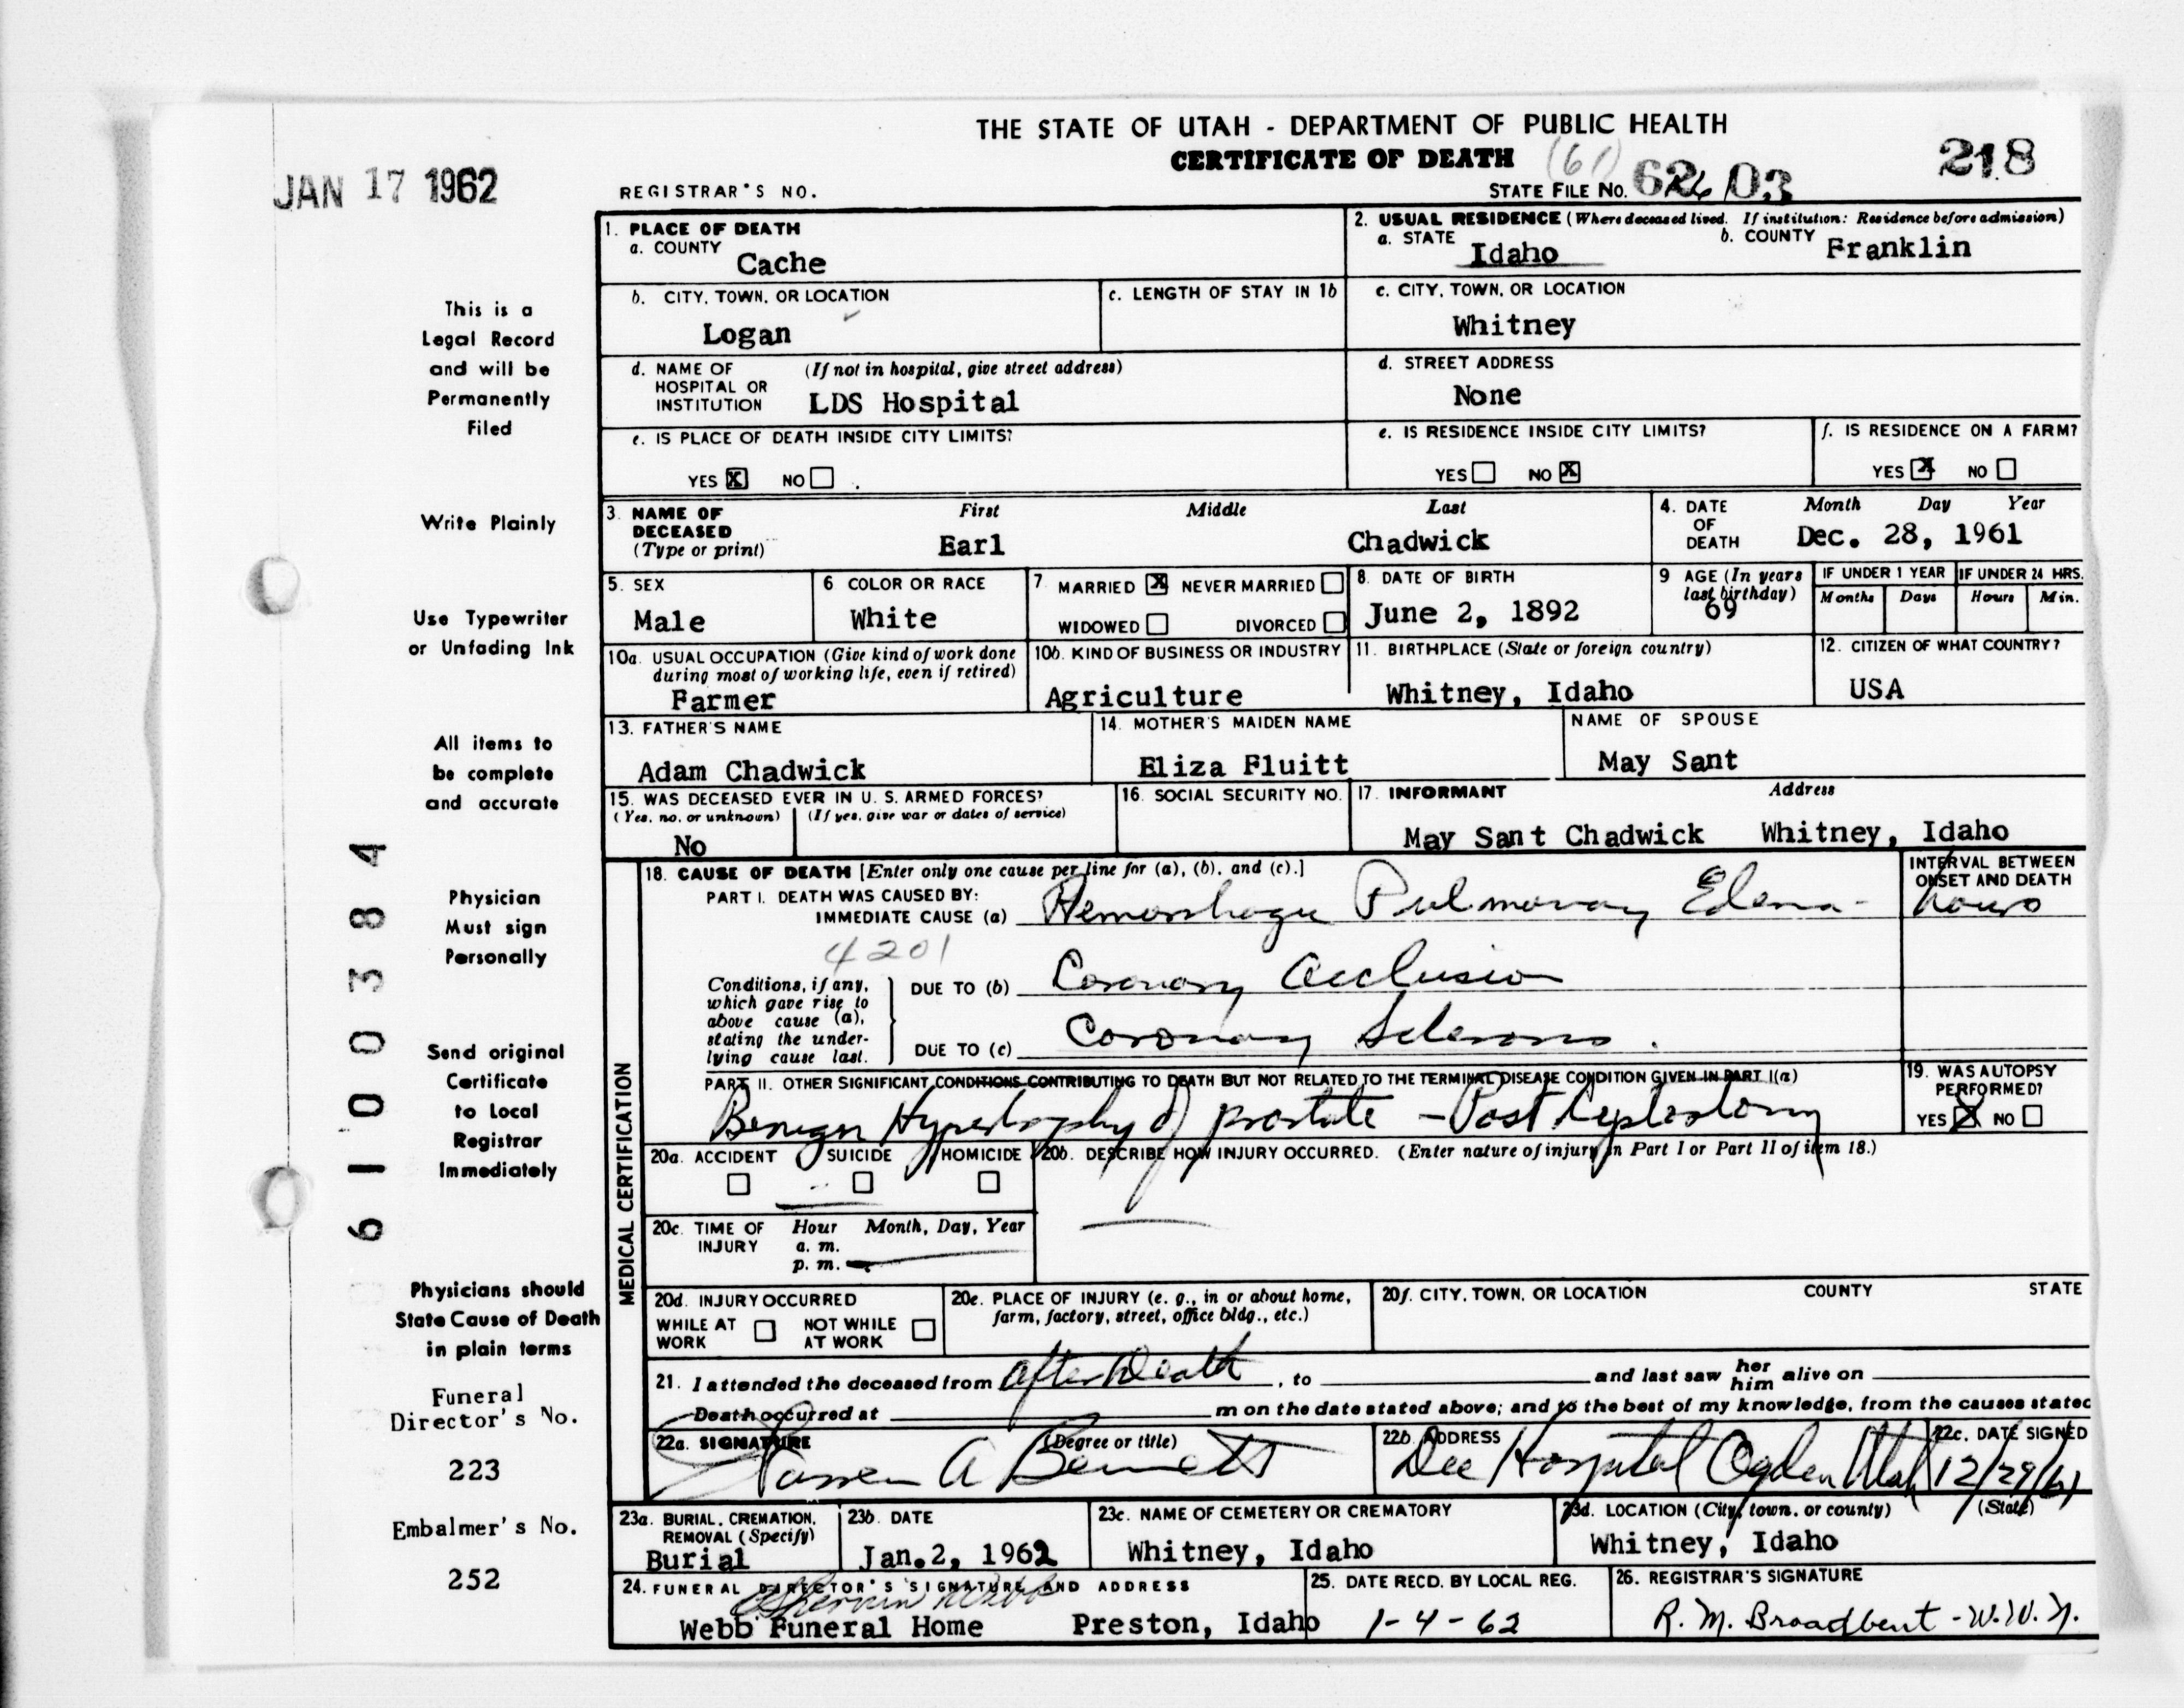 THE STATE OF UTAH - DEPARTMENT OF PUBLIC HEALTH
CERTIFICATE OF DEATH
(61)
218
JAN 17 1962
REGISTRAR'S NO.
STATE FILE NO.
1. PLACE OF DEATH
a. COUNTY
Cache
2. USUAL RESIDENCE (Where deceased lived. If institution: Residence before admission)
a. STATE Idaho b. COUNTY Franklin
b. CITY, TOWN, OR LOCATION
Logan
c. LENGTH OF STAY IN 1b
c. CITY, TOWN, OR LOCATION
Whitney
d. NAME OF HOSPITAL OR INSTITUTION (If not in hospital, give street address)
LDS Hospital
d. STREET ADDRESS
None
e. IS PLACE OF DEATH INSIDE CITY LIMITS?
YES X NO
e. IS RESIDENCE INSIDE CITY LIMITS?
YES NO X
f. IS RESIDENCE ON A FARM?
YES X NO
3. NAME OF DECEASED (Type or print)
First Middle Last
Earl Chadwick
4. DATE OF DEATH Month Day Year
Dec. 28, 1961
5. SEX
Male
6 COLOR OR RACE
White
7. MARRIED X NEVER MARRIED
WIDOWED DIVORCED
8. DATE OF BIRTH
June 2, 1892
9 AGE (In years last birthday)
69
IF UNDER 1 YEAR
Months Days
IF UNDER 24 HRS.
Hours Min.
10a. USUAL OCCUPATION (Give kind of work done during most of working life, even if retired)
Farmer
10b. KIND OF BUSINESS OR INDUSTRY
Agriculture
11. BIRTHPLACE (State or foreign country)
Whitney, Idaho
12. CITIZEN OF WHAT COUNTRY?
USA
13. FATHER'S NAME
Adam Chadwick
14. MOTHER'S MAIDEN NAME
Eliza Fluitt
NAME OF SPOUSE
May Sant
15. WAS DECEASED EVER IN U. S. ARMED FORCES?
(Yes, no, or unknown) (If yes, give war or dates of service)
No
16. SOCIAL SECURITY NO.
17. INFORMANT Address
May Sant Chadwick Whitney, Idaho
MEDICAL CERTIFICATION
18. CAUSE OF DEATH [Enter only one cause per line for (a), (b), and (c).]
PART I. DEATH WAS CAUSED BY:
IMMEDIATE CAUSE (a) Hemorrhagic Pulmonary Edema
INTERVAL BETWEEN ONSET AND DEATH
hours
4201
Conditions, if any, which gave rise to above cause (a), stating the underlying cause last.
DUE TO (b) Coronary Occlusion
DUE TO (c) Coronary Sclerosis.
PART II. OTHER SIGNIFICANT CONDITIONS CONTRIBUTING TO DEATH BUT NOT RELATED TO THE TERMINAL DISEASE CONDITION GIVEN IN PART I(a)
Benign Hypertrophy of prostate - Post
19. WAS AUTOPSY PERFORMED?
YES X NO
20a. ACCIDENT SUICIDE HOMICIDE
20b. DESCRIBE HOW INJURY OCCURRED. (Enter nature of injury in Part I or Part II of item 18.)
20c. TIME OF INJURY Hour Month, Day, Year
a. m.
p. m.
20d. INJURY OCCURRED
WHILE AT WORK NOT WHILE AT WORK
20e. PLACE OF INJURY (e. g., in or about home, farm, factory, street, office bldg., etc.)
20f. CITY, TOWN, OR LOCATION COUNTY STATE
21. I attended the deceased from after Death, to and last saw her him alive on
Death occurred at m on the date stated above; and to the best of my knowledge, from the causes stated
22a. SIGNATURE (Degree or title)
A Bennett
22b. ADDRESS
Dee Hospital Ogden Utah
22c. DATE SIGNED
12/29/61
23a. BURIAL, CREMATION, REMOVAL (Specify)
Burial
23b. DATE
Jan. 2, 1962
23c. NAME OF CEMETERY OR CREMATORY
Whitney, Idaho
23d. LOCATION (City, town, or county) (State)
Whitney, Idaho
24. FUNERAL DIRECTOR'S SIGNATURE AND ADDRESS
Webb
Webb Funeral Home Preston, Idaho
25. DATE RECD. BY LOCAL REG.
1-4-62
26. REGISTRAR'S SIGNATURE
R. M. Broadbent - W.W.N.
This is a
Legal Record
and will be
Permanently
Filed
Write Plainly
Use Typewriter
or Unfading Ink
All items to
be complete
and accurate
Physician
Must sign
Personally
Send original
Certificate
to Local
Registrar
Immediately
Physicians should
State Cause of Death
in plain terms
Funeral
Director's No.
223
Embalmer's No.
252
6 1 0 0 3 8 4